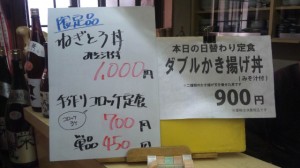 限定品
ねぎとろ丼
1,000円
手作りコロッケ定食
700円
単品 450円
本日の日替わり定食
ダブルかき揚げ丼
(みそ汁付)
900円